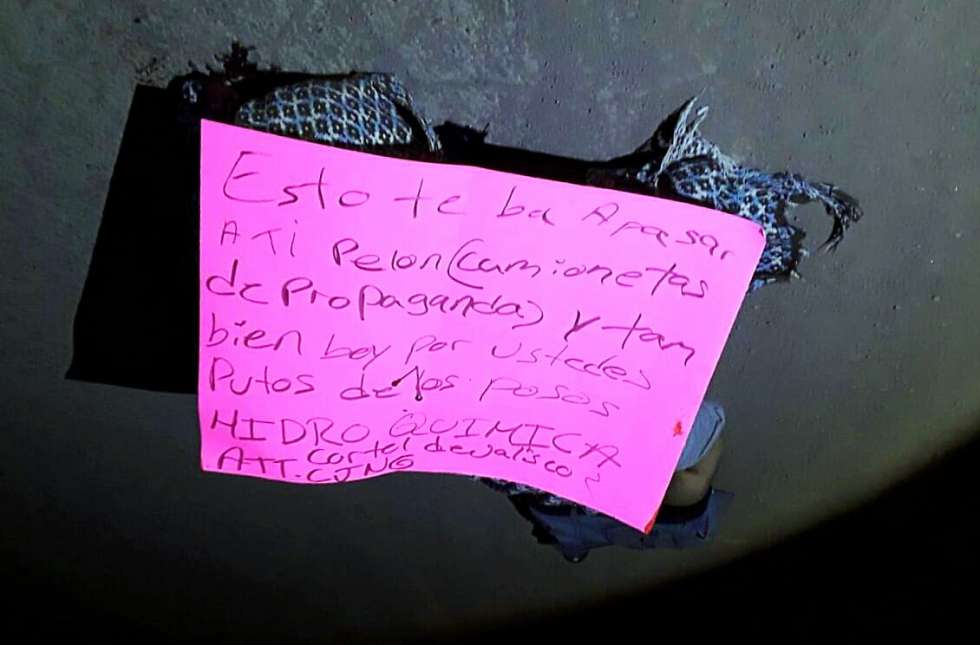 Esto te ba Apasar
A Ti Pelon (camionetas
de Propaganda) y tam
bien boy por ustedes
Putos de los posos
HIDRO QUIMICA
ATT. Cartel de Jalisco
CJNG